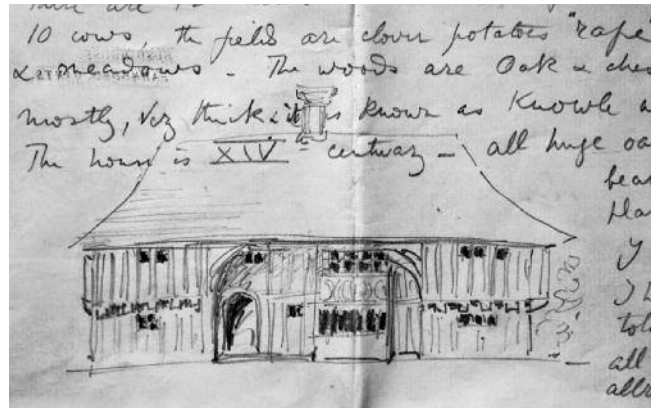 There are
10 cows, the fields are clover potatoes "rape"
& meadows - The woods are Oak & ches
mostly, Vey thick & it is known as Knowle
The house is XIV century - all huge oa
bea
y
tol
all